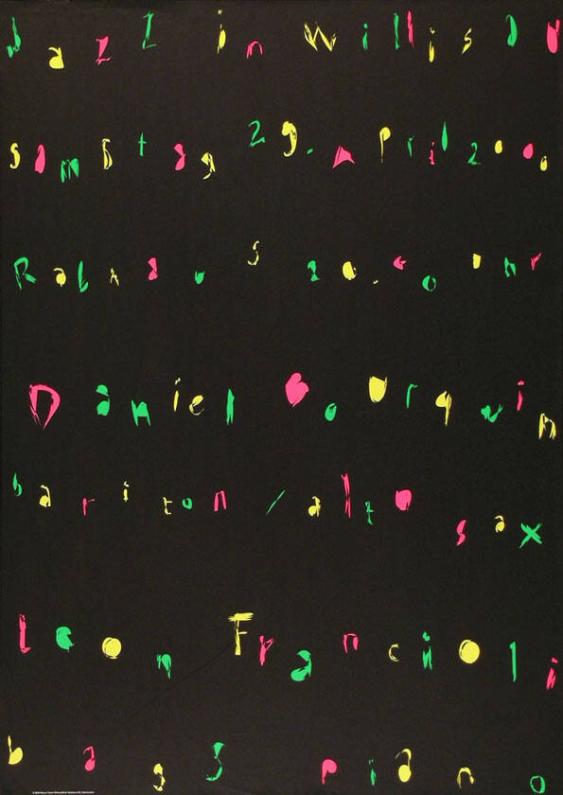 Jazz in Willisau
samstag 29. April 2000
Rathaus 20.00 uhr
Daniel Bourquin
bariton/alto sax
Leon Francioli
bass piano